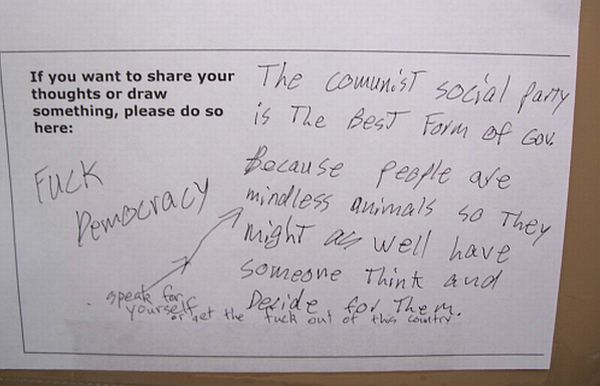 If you want to share your
thoughts or draw
something, please do so
here:
The comunist social party
is The Best Form of Gov.
Because people are
mindless animals so They
might as well have
someone Think and
Decide for Them.
Fuck
Democracy
speak for
yourself
or get the fuck out of this country